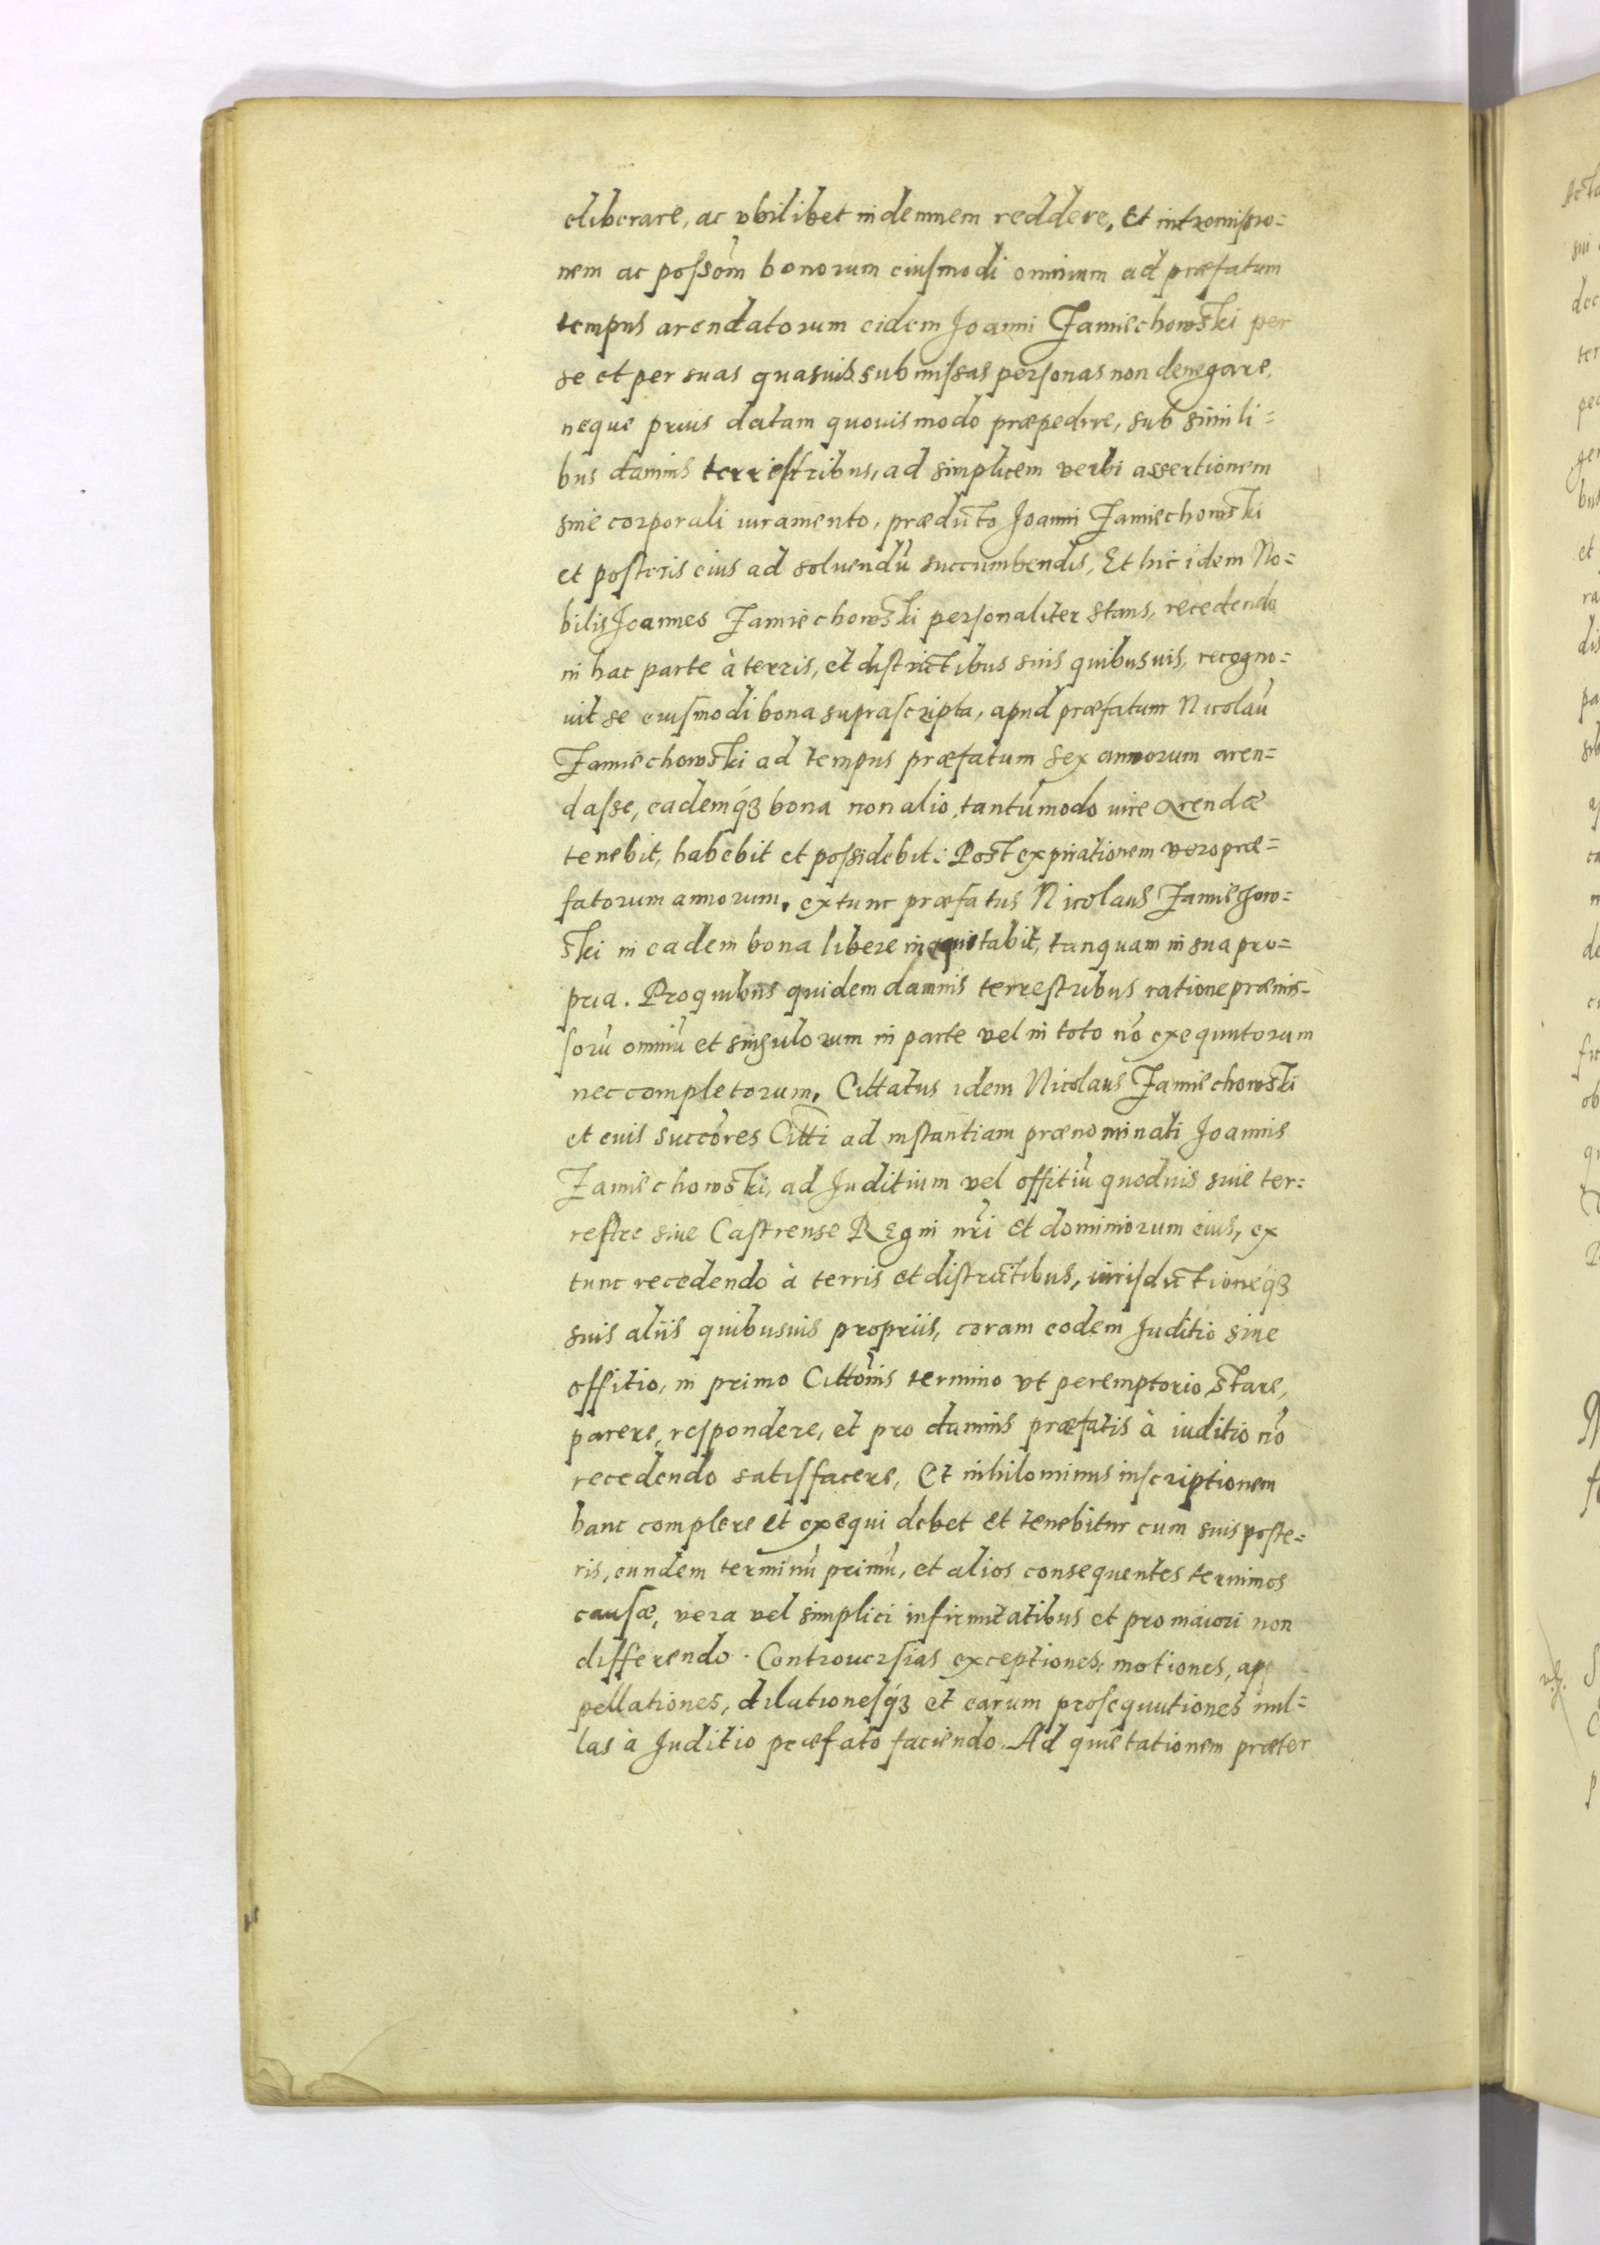 eliberare, ac vbilibet indemnem reddere, Et intromißio=
nem ac possom̃ bonorum eiusmodi omnium ad præfatum
tempus arendatorum eidem Joanni Zamiechowski per
se et per suas quasuis submissas personas non denegare,
neque prius datam quouis modo præpedire, sub simili=
bus damnis terrestribus, ad simplicem verbi assertionem
sine corporali iuramento, prædicto Joanni Zamiechowski
et posteris eius ad soluendũ succumbendis, Et hic idem No=
bilis Joannes Zamiechowski personaliter stans, recedendo
in hac parte à terris, et districtibus suis quibusuis, recogno=
uit se eiusmodi bona suprascripta, apud præfatum Nicolaũ
Zamiechowski ad tempus præfatum sex annorum aren=
dasse, eademq́ꝫ bona non alio, tantũmodo iure arendæ
tenebit, habebit et possidebit: Post expirationem vero præ=
fatorum annorum, extunc præfatus Nicolaus Zamiehow=
ski in eadem bona libere inequitabit, tanquam in sua pro=
pria. Pro quibus quidem damnis terrestribus ratione præmis=
sorũ omniũ et singulorum in parte vel in toto nõ exequutorum
nec completorum, Cittatus idem Nicolaus Zamiechowski
et euis succõres Citti ad instantiam prænominati Joannis
Zamiechowski, ad Juditium vel offitiũ quoduis siue ter=
restre siue Castrense Regni nr̃i et dominiorum eius, ex
tunc recedendo à terris et districtibus, iurisdictioneq́ꝫ
suis aliis quibusuis propriis, coram eodem Juditio siue
offitio, in primo Cittõnis termino vt peremptorio stare,
parere, respondere, et pro damnis præfatis à iuditio nõ
recedendo satisfacere, Et nihilominus inscriptionem
hanc complere et exequi debet et tenebitur cum suis poste=
ris, eundem terminũ primũ, et alios consequentes terminos
causæ, vera vel simplici infirmitatibus et pro maiori non
differendo. Controuersias exceptiones, motiones, ap
pellationes, dilationesq́ꝫ et earum prosequutiones nul=
las à Juditio præfato faciendo. Ad quietationem præter